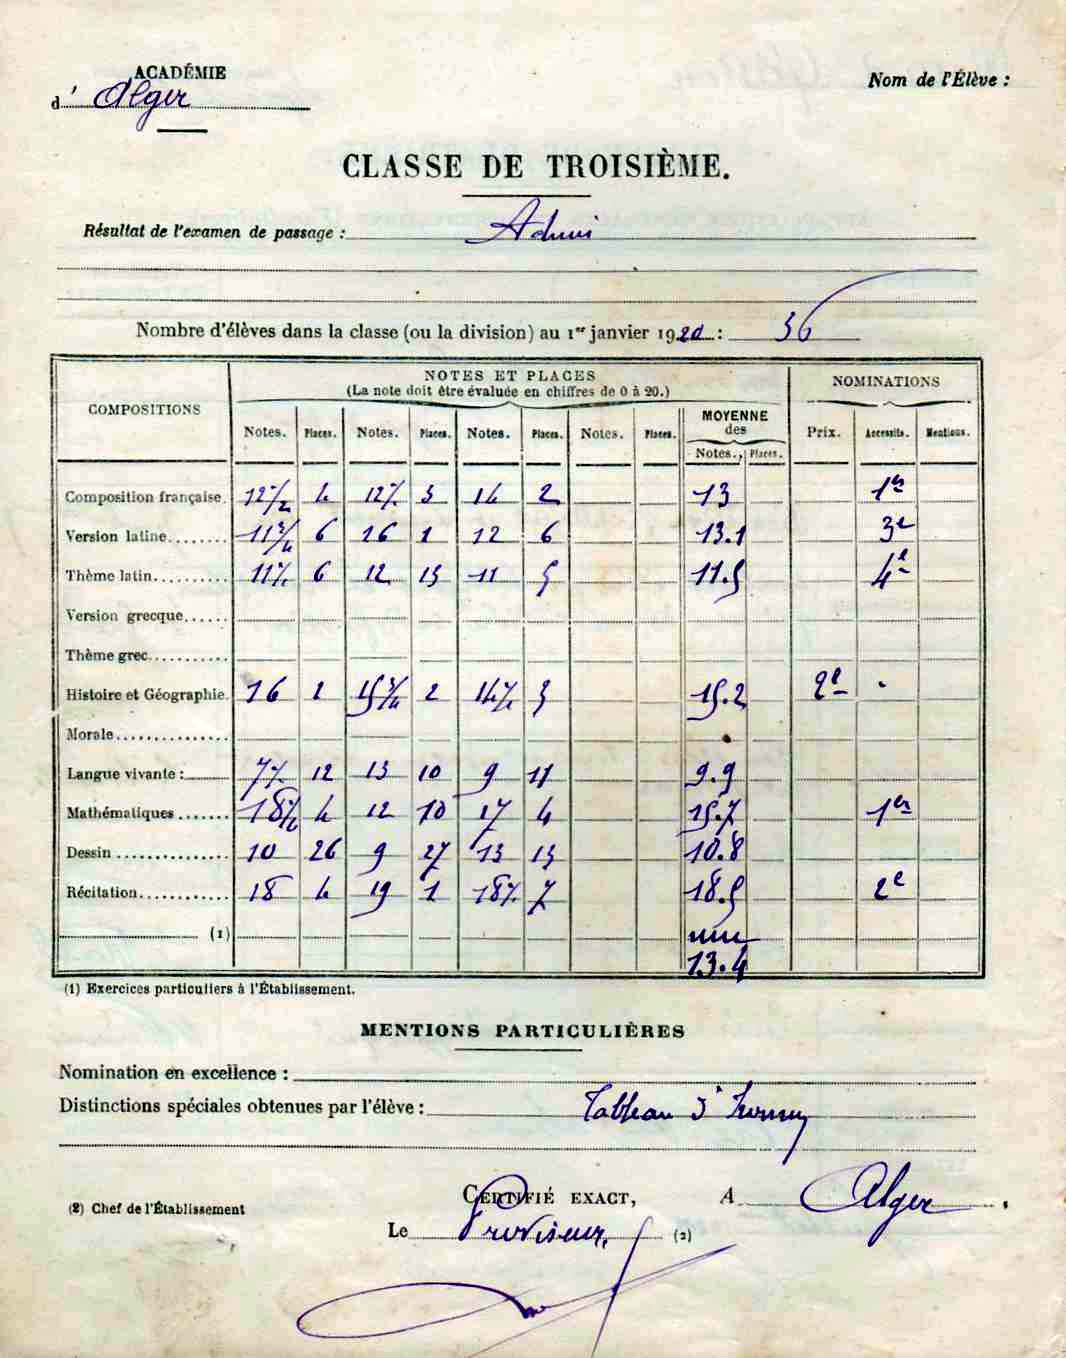 ACADÉMIE
d' Alger
Nom de l'Élève :
CLASSE DE TROISIÈME.
Résultat de l'examen de passage : Admis
Nombre d'élèves dans la classe (ou la division) au 1er janvier 1920 : 36
COMPOSITIONS NOTES ET PLACES NOMINATIONS
(La note doit être évaluée en chiffres de 0 à 20.)
Notes. Places. Notes. Places. Notes. Places. Notes. Places. MOYENNE des Prix. Accessits. Mentions.
Notes. Places.
Composition française. 12½ 4 12½ 5 14 2 13 1er
Version latine 11¾ 6 16 1 12 6 13.1 3e
Thème latin 11½ 6 12 15 11 5 11.5 4e
Version grecque
Thème grec
Histoire et Géographie. 16 1 15¾ 2 14½ 3 15.2 2e
Morale
Langue vivante : 7½ 12 13 10 9 11 9.9
Mathématiques 18½ 4 12 10 17 4 15.7 1er
Dessin 10 26 9 27 13 13 10.8
Récitation 18 4 19 1 18½ 7 18.5 2e
(1)
13.4
(1) Exercices particuliers à l'Établissement.
MENTIONS PARTICULIÈRES
Nomination en excellence :
Distinctions spéciales obtenues par l'élève : Tableau d'honneur
CERTIFIÉ EXACT, A Alger.
(2) Chef de l'Établissement
Le Proviseur, (2)